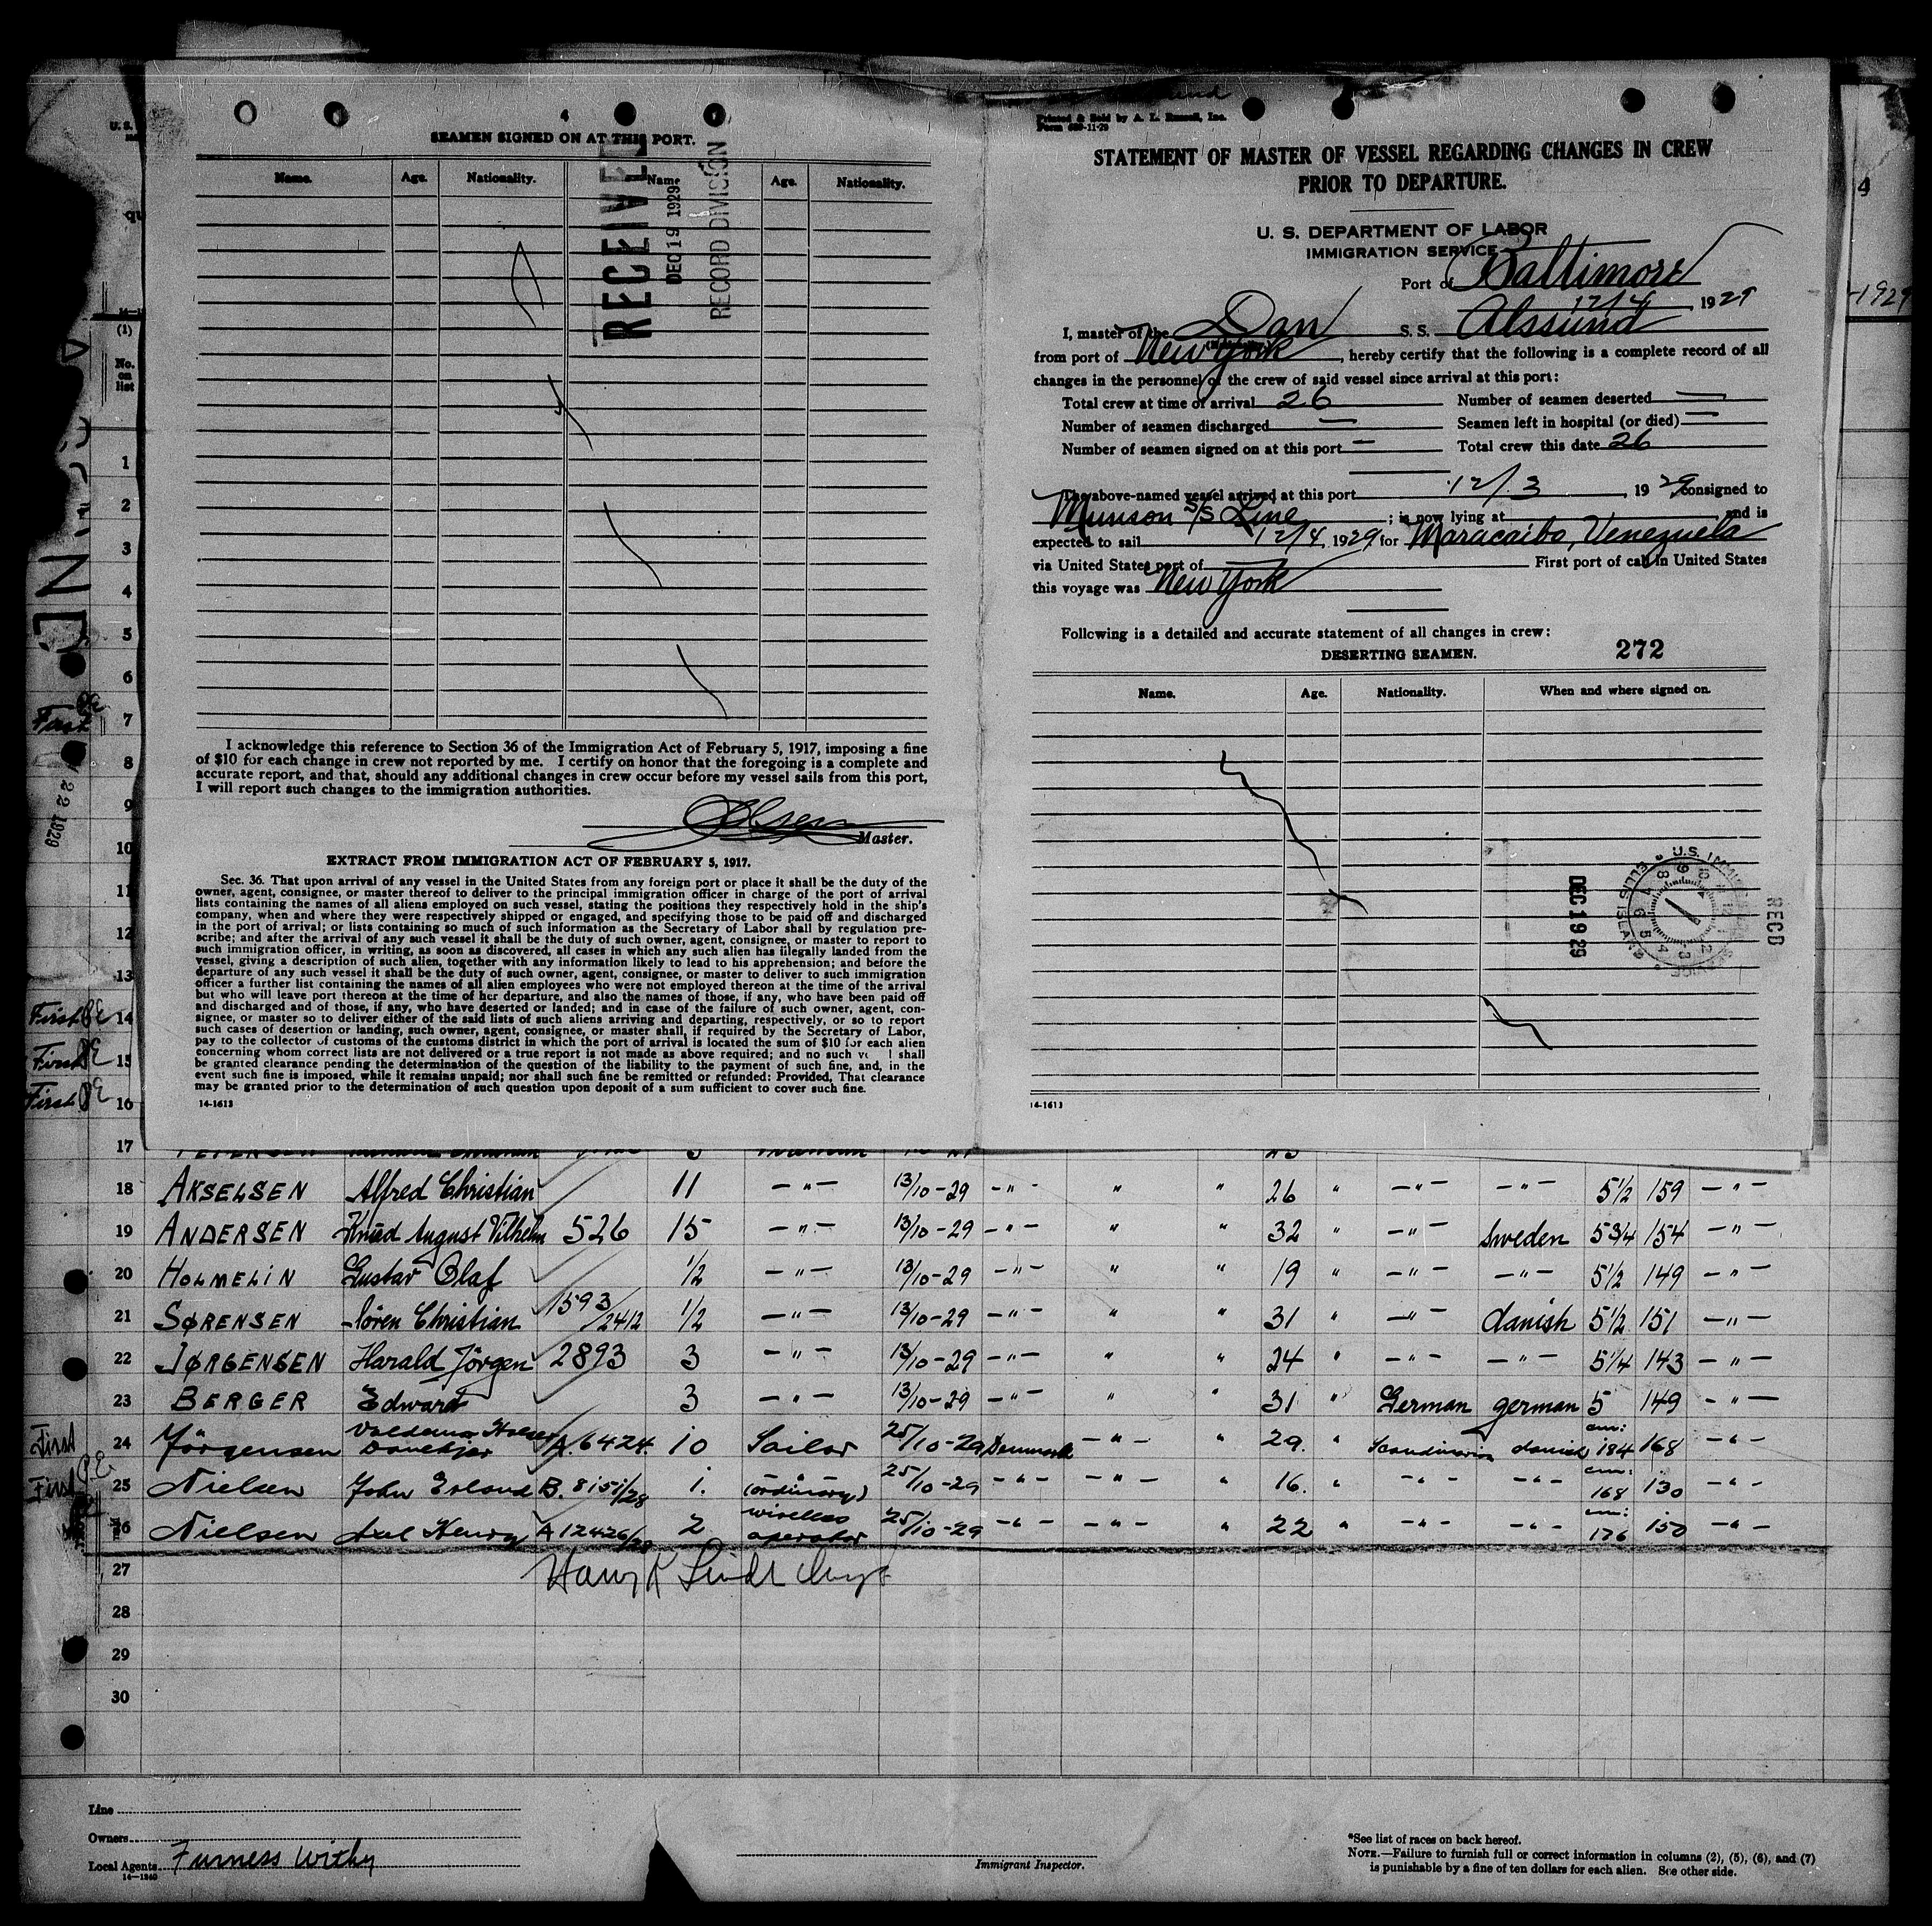 4
SEAMEN SIGNED ON AT THIS PORT.
Name. Age. Nationality. Name Age. Nationality.
RECEIVED
DEC 19 1929
RECORD DIVISION
I acknowledge this reference to Section 36 of the Immigration Act of February 5, 1917, imposing a fine
of $10 for each change in crew not reported by me. I certify on honor that the foregoing is a complete and
accurate report, and that, should any additional changes in crew occur before my vessel sails from this port,
I will report such changes to the immigration authorities.
Master.
EXTRACT FROM IMMIGRATION ACT OF FEBRUARY 5, 1917.
Sec. 36. That upon arrival of any vessel in the United States from any foreign port or place it shall be the duty of the
owner, agent, consignee, or master thereof to deliver to the principal immigration officer in charge of the port of arrival
lists containing the names of all aliens employed on such vessel, stating the positions they respectively hold in the ship's
company, when and where they were respectively shipped or engaged, and specifying those to be paid off and discharged
in the port of arrival; or lists containing so much of such information as the Secretary of Labor shall by regulation pre-
scribe; and after the arrival of any such vessel it shall be the duty of such owner, agent, consignee, or master to report to
such immigration officer, in writing, as soon as discovered, all cases in which any such alien has illegally landed from the
vessel, giving a description of such alien, together with any information likely to lead to his apprehension; and before the
departure of any such vessel it shall be the duty of such owner, agent, consignee, or master to deliver to such immigration
officer a further list containing the names of all alien employees who were not employed thereon at the time of the arrival
but who will leave port thereon at the time of her departure, and also the names of those, if any, who have been paid off
and discharged and of those, if any, who have deserted or landed; and in case of the failure of such owner, agent, con-
signee, or master so to deliver either of the said lists of such aliens arriving and departing, respectively, or so to report
such cases of desertion or landing, such owner, agent, consignee, or master shall, if required by the Secretary of Labor,
pay to the collector of customs of the customs district in which the port of arrival is located the sum of $10 for each alien
concerning whom correct lists are not delivered or a true report is not made as above required; and no such v l shall
be granted clearance pending the determination of the question of the liability to the payment of such fine, and, in the
event such fine is imposed, while it remains unpaid; nor shall such fine be remitted or refunded: Provided, That clearance
may be granted prior to the determination of such question upon deposit of a sum sufficient to cover such fine.
14-1613
Printed & Sold by A. L. Russell, Inc.
STATEMENT OF MASTER OF VESSEL REGARDING CHANGES IN CREW
PRIOR TO DEPARTURE.
U. S. DEPARTMENT OF LABOR
IMMIGRATION SERVICE
Port of Baltimore
12/4 1929
I, master of the Dan S. S. Alssund
from port of New York, hereby certify that the following is a complete record of all
changes in the personnel of the crew of said vessel since arrival at this port:
Total crew at time of arrival 26 Number of seamen deserted —
Number of seamen discharged — Seamen left in hospital (or died) —
Number of seamen signed on at this port — Total crew this date 26
The above-named vessel arrived at this port 12/3, 1929, consigned to
Munson S/S Line; is now lying at , and is
expected to sail 12/4, 1929 for Maracaibo, Venezuela
via United States port of — First port of call in United States
this voyage was New York
Following is a detailed and accurate statement of all changes in crew:
DESERTING SEAMEN. 272
Name. Age. Nationality. When and where signed on.
DEC 19 29
U.S. IMMIGRATION SERVICE ELLIS ISLAND
REC'D
14-1613
U. S.
4
-1929
(1)
No.
on
list
1
2
3
4
5
6
First 7
8
9
10
11
12
13
First 14
First 15
First 16
17
18 AKSELSEN Alfred Christian 11 —"— 13/10-29 —"— " " 26 " —"— —"— 5 1/2 159 —"—
19 ANDERSEN Knud August Vilhelm 526 15 —"— 13/10-29 —"— " " 32 " —"— Sweden 5 3/4 154 —"—
20 HOLMELIN Gustav Olaf 1/2 —"— 13/10-29 —"— " " 19 " —"— —"— 5 1/2 149 —"—
21 SØRENSEN Sören Christian 1593/2412 1/2 —"— 13/10-29 —"— " " 31 " —"— danish 5 1/2 151 —"—
22 JØRGENSEN Harald Jörgen 2893 3 —"— 13/10-29 —"— " " 24 " —"— —"— 5 1/4 143 —"—
23 BERGER Edward 3 —"— 13/10-29 —"— " " 31 " German german 5 149 —"—
First 24 Jörgensen A. 6424 10 Sailor 25/10-29 Denmark —"— " 29. " Scandinavian danish cm: 184 168 —"—
First 25 Nielsen John Erland B. 8151/28 1. (ordinary) 25/10-29 —"— —"— " 16. " —"— —"— cm: 168 130 —"—
26 Nielsen Axel Henry A 12426/28 2 wireless operator 25/10-29 —"— —"— " 22 " —"— —"— cm: 176 150 —"—
27
28
29
30
Line
Owners
Local Agents Furness Withy
14—1240
Immigrant Inspector.
*See list of races on back hereof.
NOTE.—Failure to furnish full or correct information in columns (2), (5), (6), and (7)
is punishable by a fine of ten dollars for each alien. See other side.